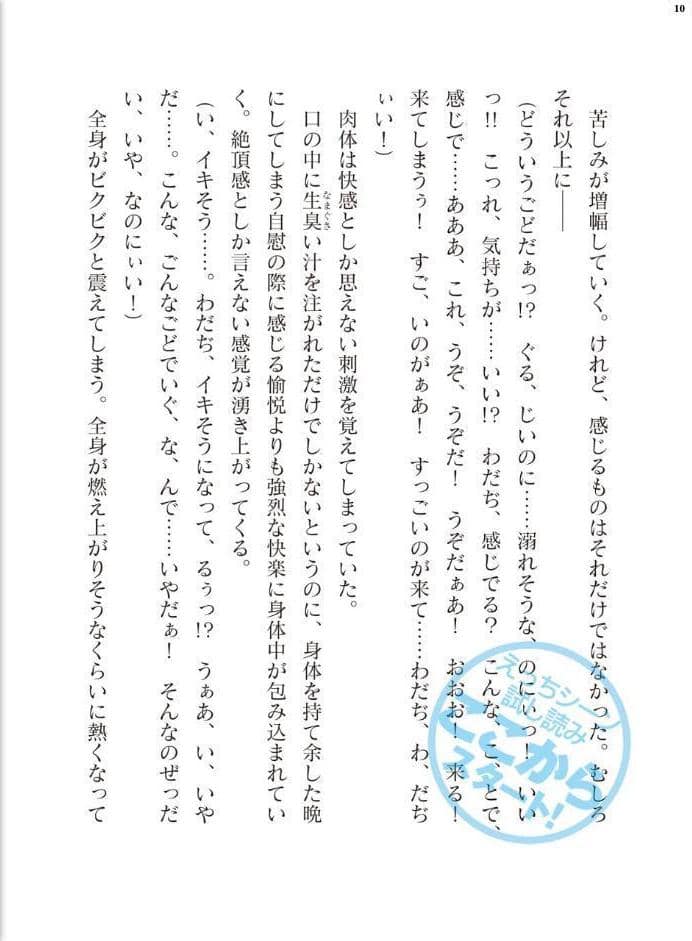 10
苦しみが増幅していく。けれど、感じるものはそれだけではなかった。むしろ
それ以上に――
（どういうごどだぁっ!?　ぐる、じいのに……溺れそうな、のにぃっ！　いい
っ!!　こっれ、気持ちが……いい!?　わだぢ、感じでる？　こんな、こ、とで、
感じで……あああ、これ、うぞ、うぞだ！　うぞだぁあ！　おおお！　来る！
来てしまうぅ！　すご、いのがぁあ！　すっごいのが来て……わだぢ、わ、だぢ
ぃい！）
肉体は快感としか思えない刺激を覚えてしまっていた。
口の中に生臭い汁を注がれただけでしかないというのに、身体を持て余した晩
なまぐさ
にしてしまう自慰の際に感じる愉悦よりも強烈な快楽に身体中が包み込まれてい
く。絶頂感としか言えない感覚が湧き上がってくる。
（い、イキそう……。わだぢ、イキそうになって、るぅっ!?　うぁあ、い、いや
だ……。こんな、ごんなごどでいぐ、な、んで……いやだぁ！　そんなのぜっだ
い、いや、なのにぃい！）
全身がビクビクと震えてしまう。全身が燃え上がりそうなくらいに熱くなって
えっちシーン
試し読み
ここから
スタート！